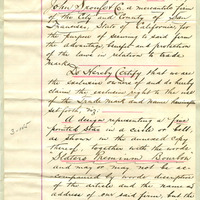 John Spruance & Co. a mercantile firm
of the City and County of San
Francisco, State of California, for
the purpose of securing to said firm
the advantage, benefit and protection
of the laws in relation to trade
marks
Do Hereby Certify that we are
the exclusive owners of and do hereby
claim the exclusive right to the use
of the Trade Mark and Name hereinafter
set forth, viz:
A design representing a "five
pointed Star in a circle or ball,
as shown in the annexed Copy
thereof, together with the words
Premium Bourbon"
and may or may not be
accompanied by words descriptive
of the article and the name and
address of our said firm, but the